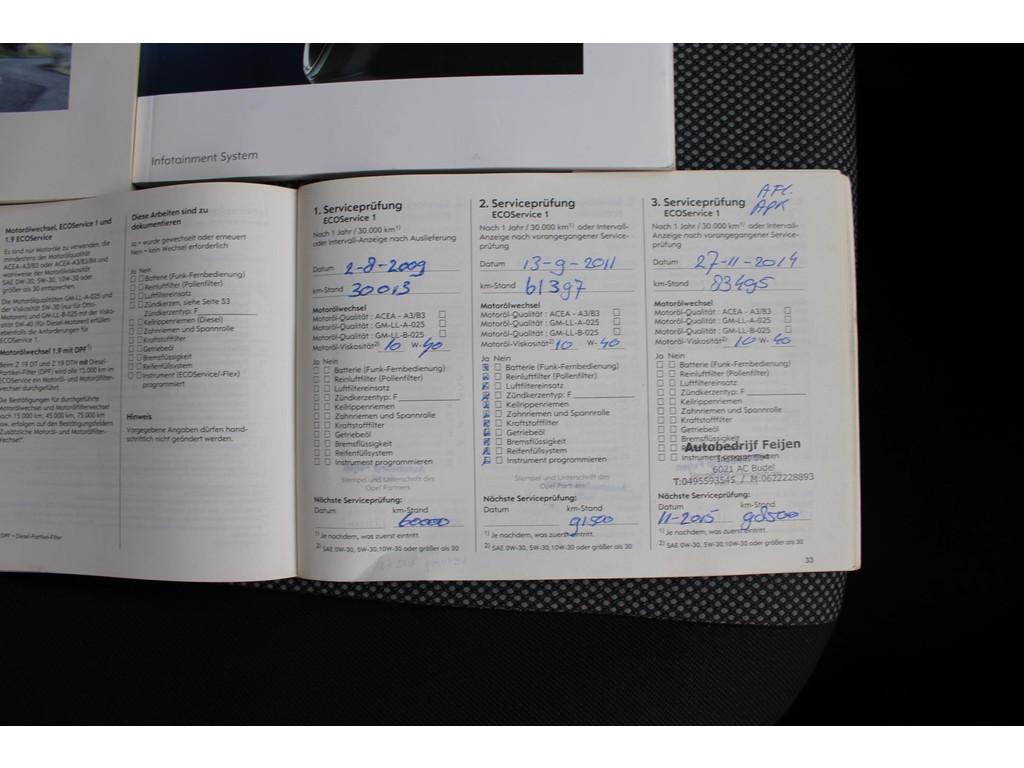 Infotainment System
Motorölwechsel, ECOService 1 und
1.9 ECOService
Es sind nur Motoröle zu verwenden, die
mindestens der Motorölqualität
ACEA-A3/B3 oder ACEA-A3/B3/B4 und
wahlweise der Motorviskosität
SAE 0W-30, 5W-30, 10W-30 oder
größer als 30 entsprechen.
Die Motorölqualitäten GM-LL-A-025 und
der Viskosität 5W-30 (nur für Otto-
Motoren) und GM-LL-B-025 mit der Visko-
sität 5W-40 (für Diesel-Motoren) erfüllen
ebenfalls die Anforderungen für
ECOService 1.
Motorölwechsel 1.9 mit DPF
Beim Z 19 DT und Z 19 DTH mit Diesel-
Partikel-Filter (DPF) wird alle 15.000 km im
ECOService ein Motoröl- und Motorölfilter-
wechsel durchgeführt.
Die Bestätigungen für durchgeführte
Motorölwechsel und Motorölfilterwechsel
nach 15.000 km, 45.000 km, 75.000 km
erfolgen auf den Bestätigungsfeldern
Zusätzliche Motoröl- und Motorölfilter-
wechsel".
DPF = Diesel-Partikel-Filter
Diese Arbeiten sind zu
dokumentieren
Ja = wurde gewechselt oder erneuert
Nein = kein Wechsel erforderlich
Ja Nein
Batterie (Funk-Fernbedienung)
Reinluftfilter (Pollenfilter)
Luftfiltereinsatz
Zündkerzen, siehe Seite 53
Zündkerzentyp: F
Keilrippenriemen (Diesel)
Zahnriemen und Spannrolle
Kraftstofffilter
Getriebeöl
Bremsflüssigkeit
Reifenfüllsystem
Instrument (ECOService/-Flex)
programmiert
Hinweis
Vorgegebene Angaben dürfen hand-
schriftlich nicht geändert werden.
1. Serviceprüfung
ECOService 1
Nach 1 Jahr / 30.000 km1)
oder Intervall-Anzeige nach Auslieferung
Datum 2-8-2009
km-Stand 30013
Motorölwechsel
Motoröl-Qualität : ACEA - A3/B3 ☐
Motoröl-Qualität : GM-LL-A-025 ☐
Motoröl-Qualität : GM-LL-B-025 ☐
Motoröl-Viskosität2) 10 W- 40
Ja Nein
☐ ☐ Batterie (Funk-Fernbedienung)
☐ ☐ Reinluftfilter (Pollenfilter)
☐ ☐ Luftfiltereinsatz
☐ ☐ Zündkerzentyp: F
☐ ☐ Keilrippenriemen
☐ ☐ Zahnriemen und Spannrolle
☐ ☐ Kraftstofffilter
☐ ☐ Getriebeöl
☐ ☐ Bremsflüssigkeit
☐ ☐ Reifenfüllsystem
☐ ☐ Instrument programmieren
Stempel und Unterschrift des
Opel Partners
Nächste Serviceprüfung:
Datum km-Stand
60000
1) Je nachdem, was zuerst eintritt.
2) SAE 0W-30, 5W-30,10W-30 oder größer als 30
2. Serviceprüfung
ECOService 1
Nach 1 Jahr / 30.000 km1) oder Intervall-
Anzeige nach vorangegangener Service-
prüfung
Datum 13-9-2011
km-Stand 61397
Motorölwechsel
Motoröl-Qualität : ACEA - A3/B3 ☐
Motoröl-Qualität : GM-LL-A-025 ☐
Motoröl-Qualität : GM-LL-B-025 ☐
Motoröl-Viskosität2) 10 W- 40
Ja Nein
Batterie (Funk-Fernbedienung)
Reinluftfilter (Pollenfilter)
Luftfiltereinsatz
Zündkerzentyp: F
Keilrippenriemen
Zahnriemen und Spannrolle
Kraftstofffilter
Getriebeöl
Bremsflüssigkeit
Reifenfüllsystem
Instrument programmieren
Stempel und Unterschrift des
Nächste Serviceprüfung:
Datum km-Stand
91500
1) Je nachdem, was zuerst eintritt.
2) SAE 0W-30, 5W-30,10W-30 oder größer als 30
AFL.
APK
3. Serviceprüfung
ECOService 1
Nach 1 Jahr / 30.000 km1) oder Intervall-
Anzeige nach vorangegangener Service-
prüfung
Datum 27-11-2014
km-Stand 83495
Motorölwechsel
Motoröl-Qualität : ACEA - A3/B3 ☐
Motoröl-Qualität : GM-LL-A-025 ☐
Motoröl-Qualität : GM-LL-B-025 ☐
Motoröl-Viskosität2) 10 W- 40
Ja Nein
☐ ☐ Batterie (Funk-Fernbedienung)
☐ ☐ Reinluftfilter (Pollenfilter)
☐ ☐ Luftfiltereinsatz
☐ ☐ Zündkerzentyp: F
☐ ☐ Keilrippenriemen
☐ ☐ Zahnriemen und Spannrolle
☐ ☐ Kraftstofffilter
☐ ☐ Getriebeöl
☐ ☐ Bremsflüssigkeit
☐ ☐ Reifenfüllsystem
☐ ☐ Instrument programmieren
Autobedrijf Feijen
6021 AC Budel
T:0495593545 / M:0622228893
Nächste Serviceprüfung:
Datum km-Stand
11-2015 98500
1) Je nachdem, was zuerst eintritt.
2) SAE 0W-30, 5W-30,10W-30 oder größer als 30
33